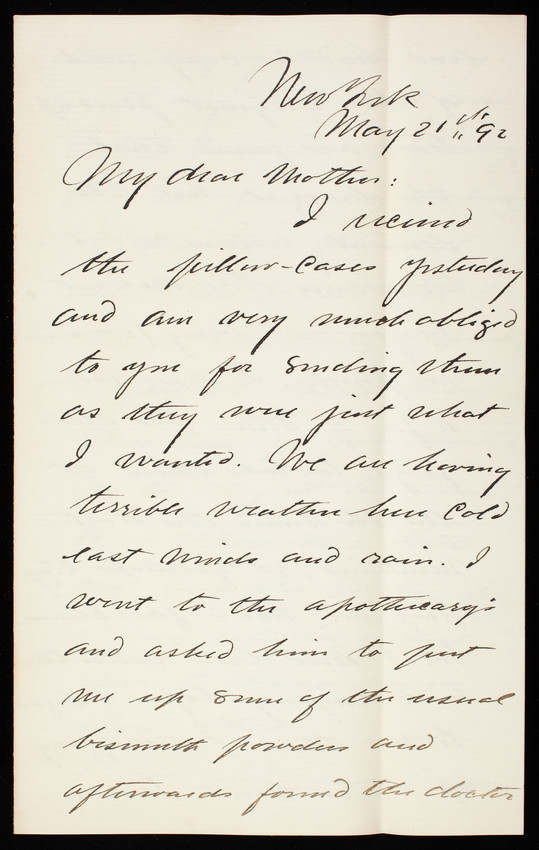 New York
May 21st "92
My dear Mother:
I recieved
the pillow-cases yesterday
and am very much obliged
to you for sending them
as they were just what
I wanted. We are having
terrible weather here cold
east winds and rain. I
went to the apothecary's
and asked him to put
me up some of the usual
bismuth powders and
afterwards found the doctor